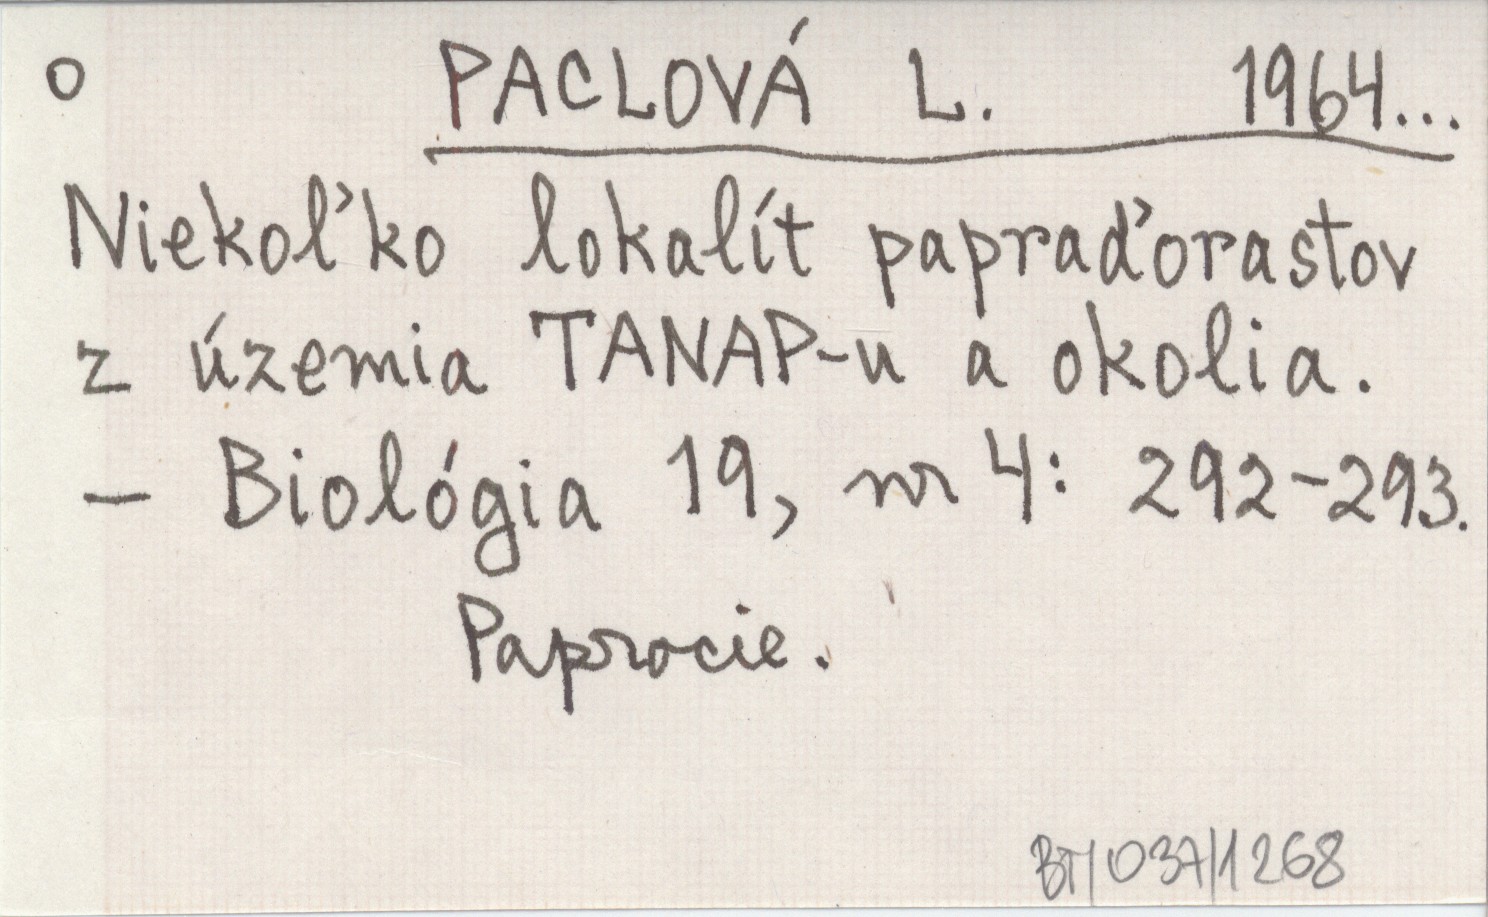 o PACLOVÁ L. 1964...
Niekoľko lokalít papraďorastov
z územia TANAP-u a okolia.
– Biológia 19, nr 4: 292-293.
Paprocie.
BT/037/1268